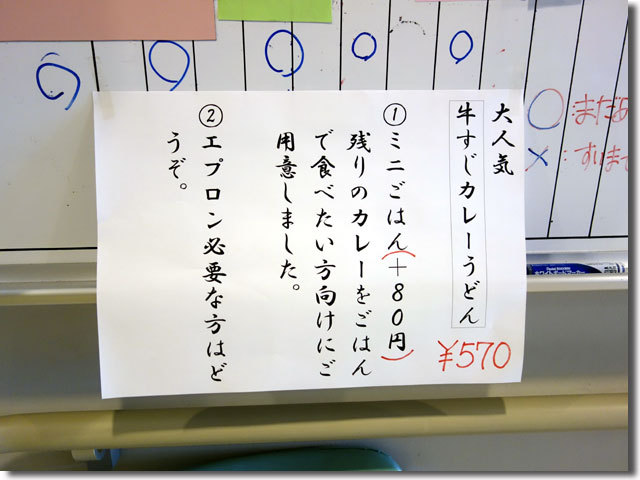 大人気
牛すじカレーうどん
¥570
①ミニごはん(+80円)
残りのカレーをごはん
で食べたい方向けにご
用意しました。
②エプロン必要な方はど
うぞ。
○:まだあ
×:すいませ
ホワイトボードマーカー